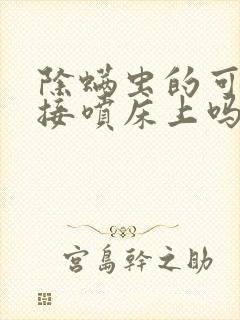 除螨虫的可
接喷床上吗
宫島幹之助